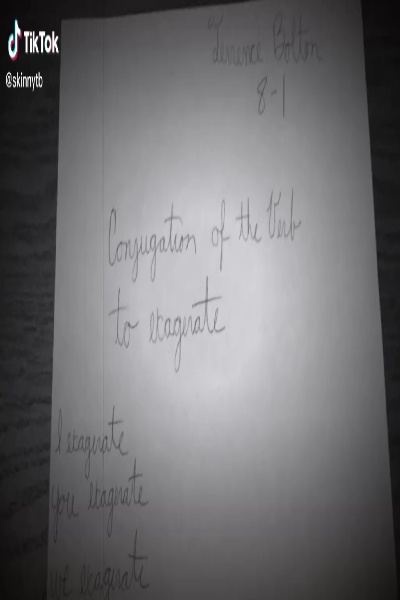 TikTok
@skinnytb
Terence Bolton
8-1
Conjugation of the Verb
to exagerate
I exagerate
you exagerate
we exagerate